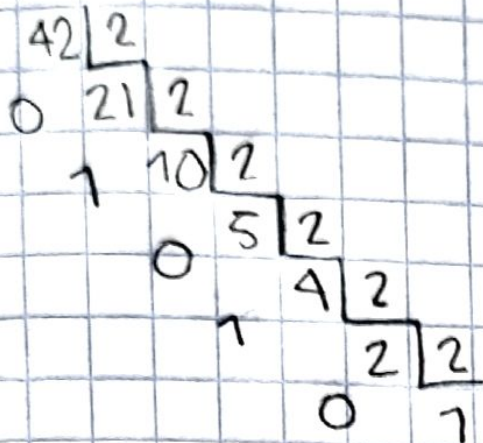 42 2
0 21 2
1 10 2
0 5 2
1 4 2
0 2 2
1